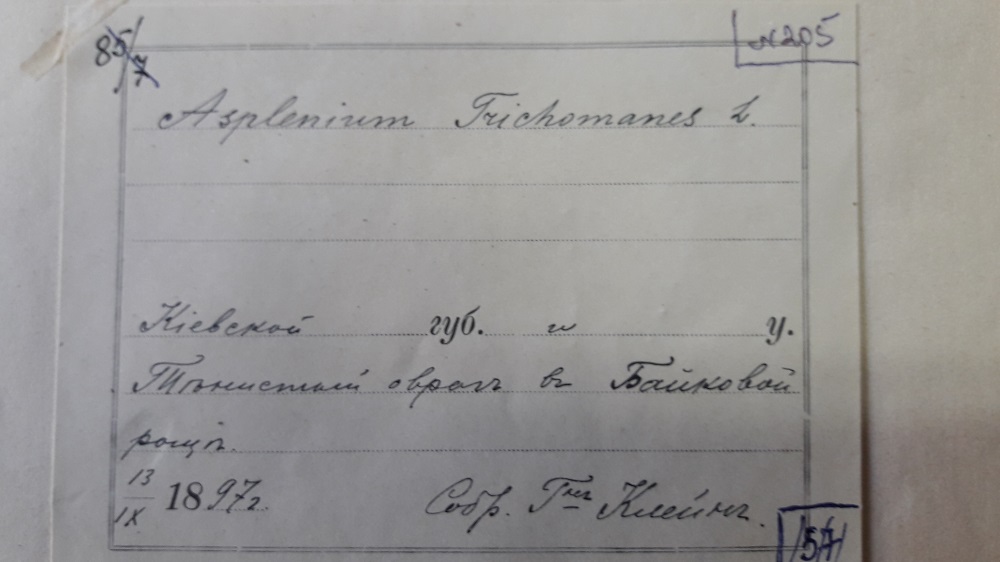 85/7
№205
Asplenium Trichomanes L.
Кіевской губ. и у.
Тѣнистый оврагъ въ Байковой
рощѣ.
13/IX 1897г. Собр. Г-нъ Клейнъ.
57